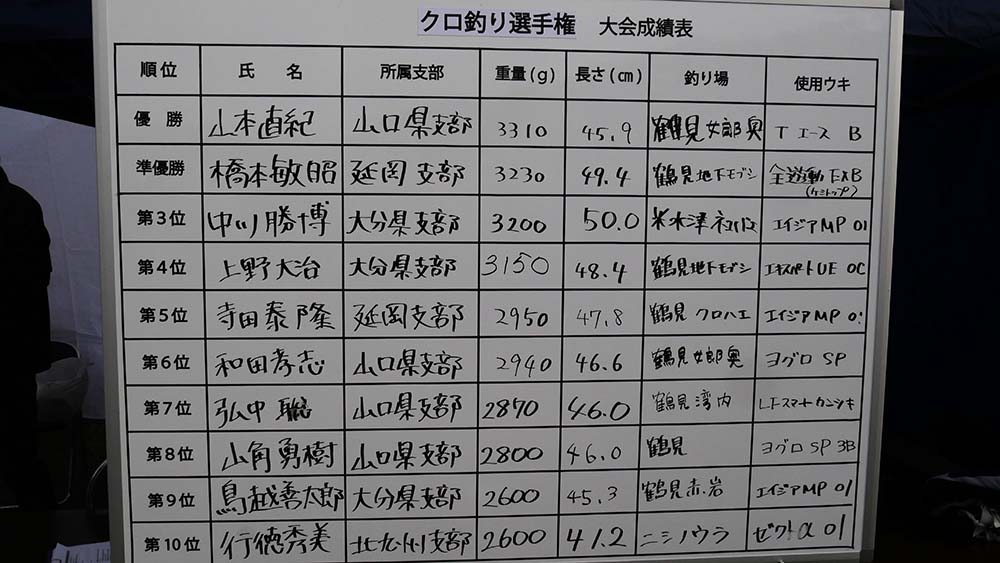 クロ釣り選手権 大会成績表
順位 氏名 所属支部 重量(g) 長さ(cm) 釣り場 使用ウキ
優勝 山本直紀 山口県支部 3310 45.9 鶴見女郎奥 Tエース B
準優勝 橋本敏昭 延岡支部 3230 49.4 鶴見地下モブシ 全遊動 EXB
(ケミトップ)
第3位 中川勝博 大分県支部 3200 50.0 米水津 エイジアMP 01
第4位 上野大治 大分県支部 3150 48.4 鶴見地下モブシ エキスパートUE 0C
第5位 寺田泰隆 延岡支部 2950 47.8 鶴見 クロハエ エイジアMP
第6位 和田孝志 山口県支部 2940 46.6 鶴見女郎奥 ヨグロ SP
第7位 弘中聡 山口県支部 2870 46.0 鶴見湾内
第8位 山角勇樹 山口県支部 2800 46.0 鶴見 ヨグロ SP 3B
第9位 鳥越善太郎 大分県支部 2600 45.3 鶴見赤岩 エイジアMP 01
第10位 行徳秀美 北九州支部 2600 41.2 ニシノウラ ゼクトα 01